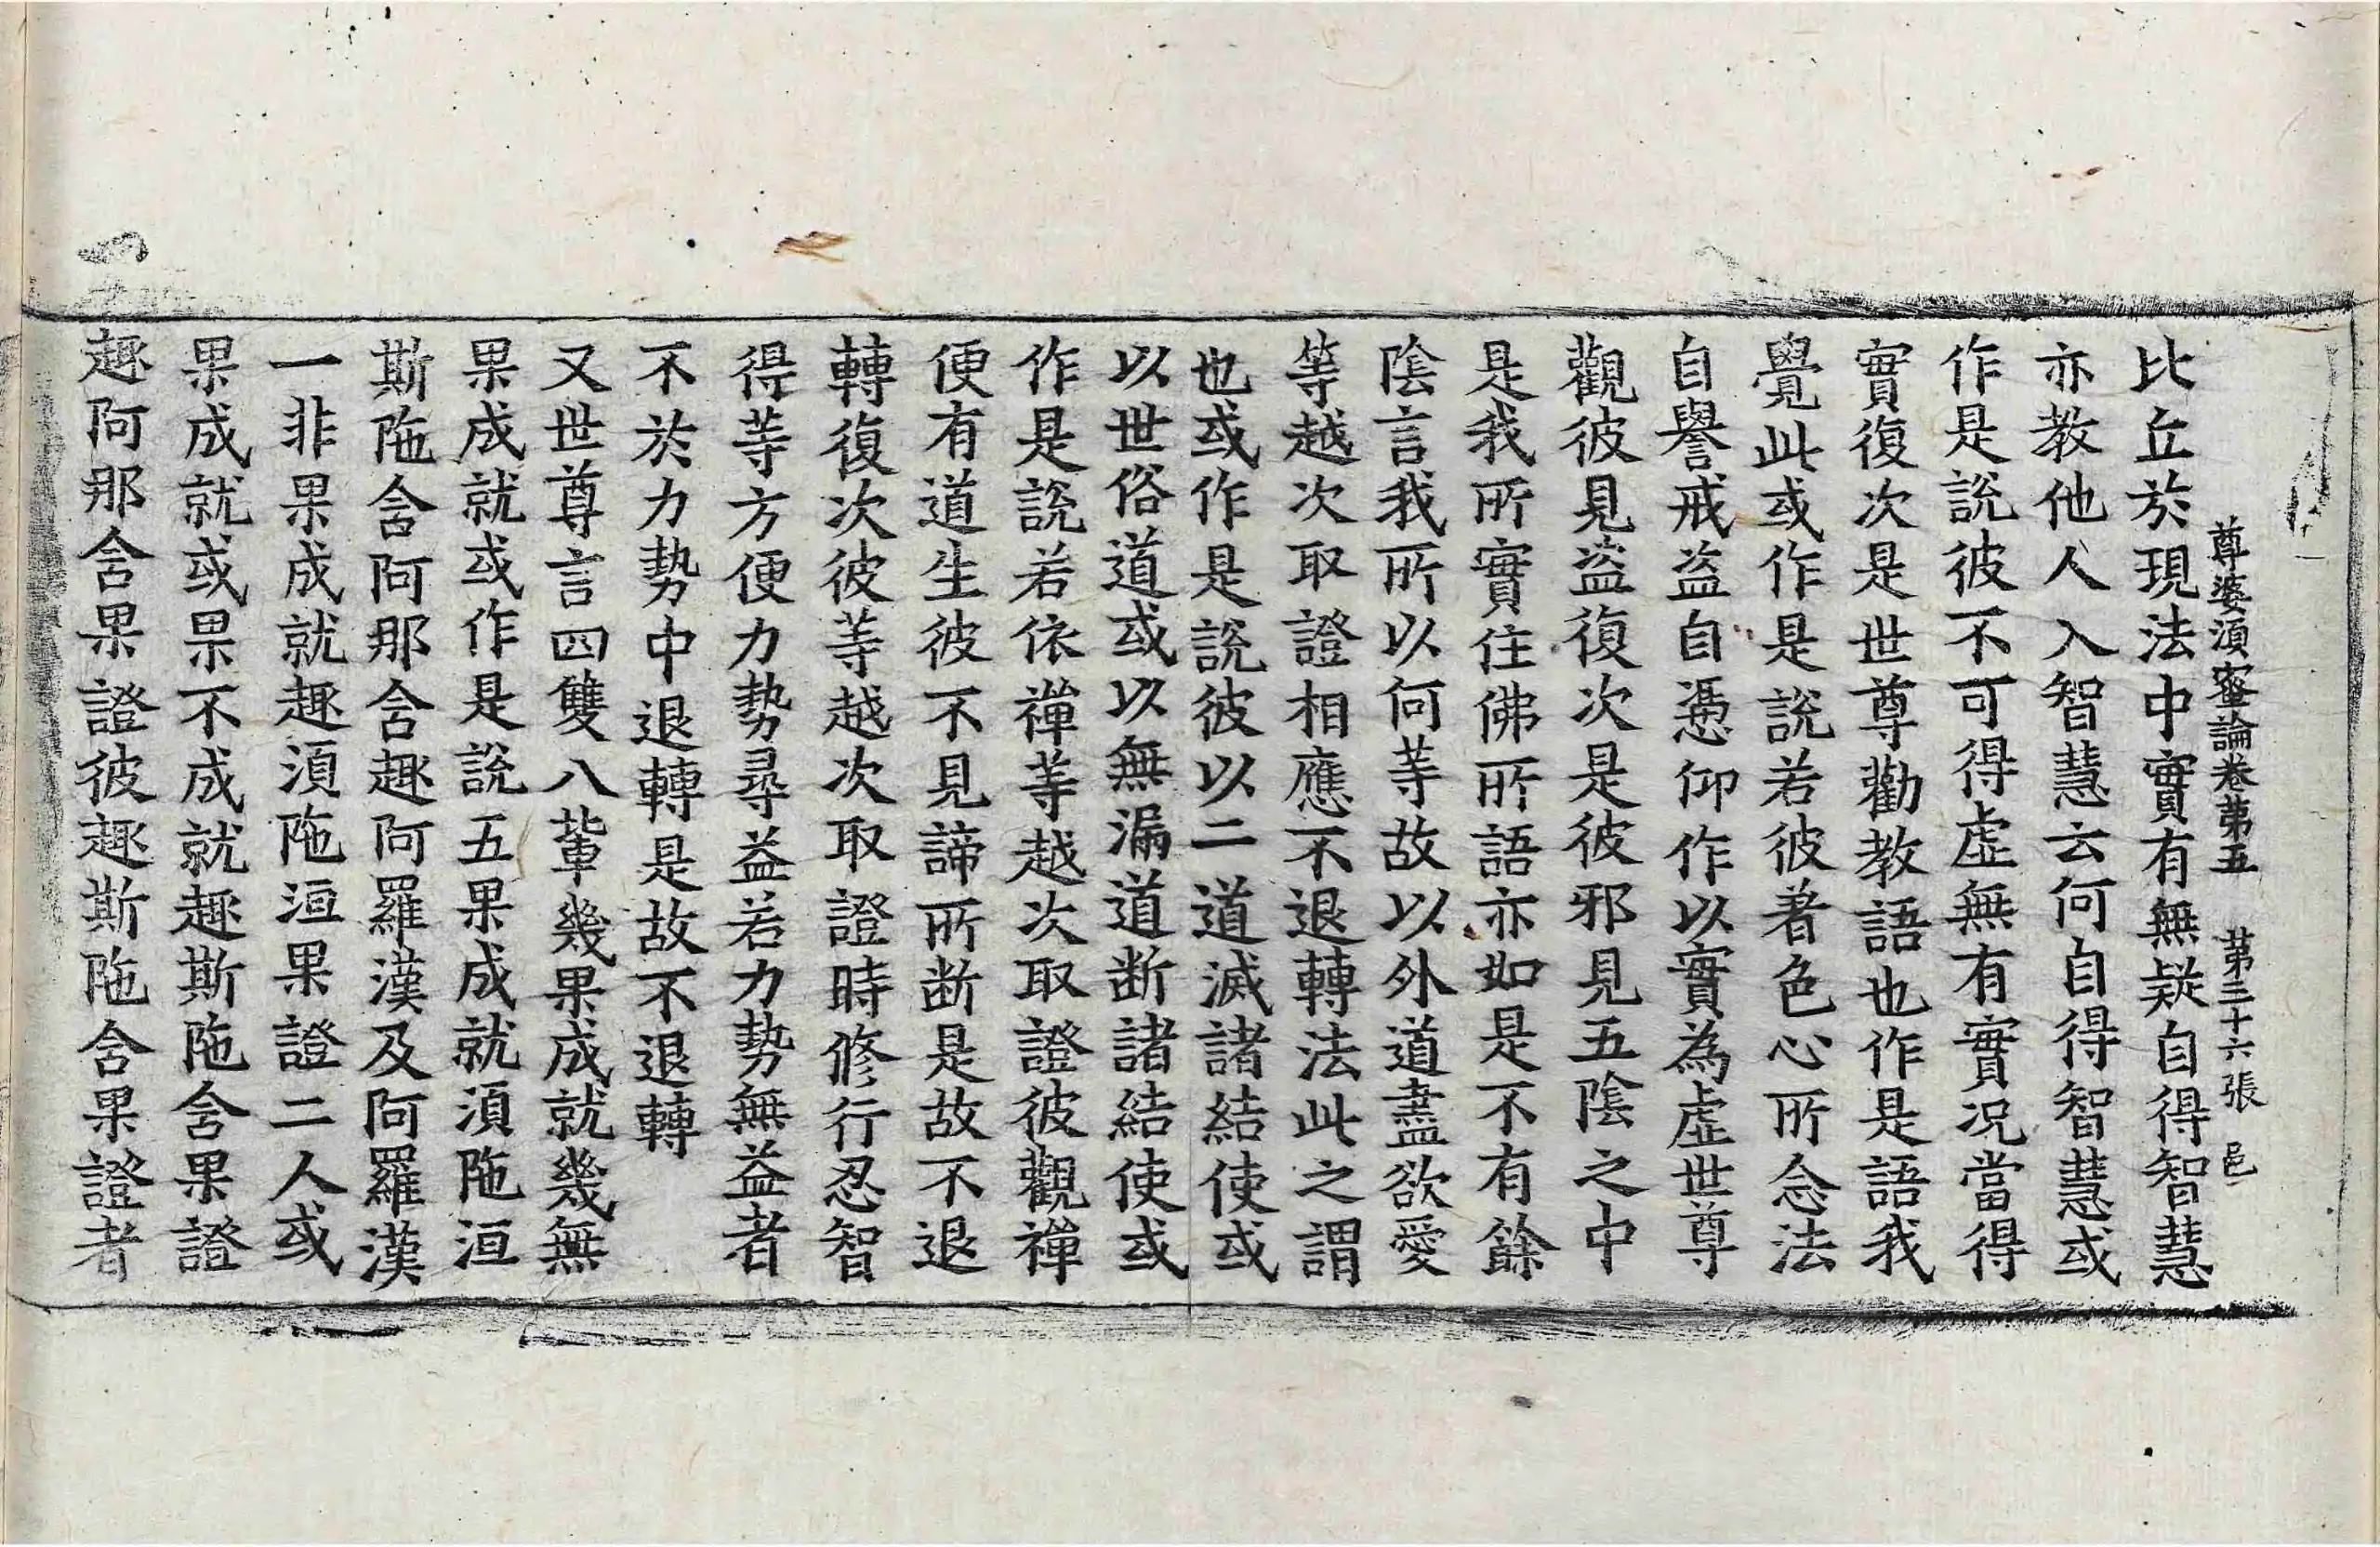 尊婆須蜜論卷第五　第三十六張　邑
比丘於現法中實有無疑自得智慧
亦教他人入智慧云何自得智慧或
作是說彼不可得虛無有實况當得
實復次是世尊勸教語也作是語我
覺此或作是說若彼著色心所念法
自譽戒盜自憑仰作以實為虛世尊
觀彼見盜復次是彼邪見五陰之中
是我所實住佛所語亦如是不有餘
陰言我所以何等故以外道盡欲愛
等越次取證相應不退轉法此之謂
也或作是說彼以二道滅諸結使或
以世俗道或以無漏道断諸結使或
作是說若依禪等越次取證彼觀禪
便有道生彼不見諦所断是故不退
轉復次彼等越次取證時修行忍智
得等方便力勢尋益若力勢無益者
不於力勢中退轉是故不退轉
又世尊言四雙八輩幾果成就幾無
果成就或作是說五果成就湏陁洹
斯陁含阿那含趣阿羅漢及阿羅漢
一非果成就趣湏陁洹果證二人或
果成就或果不成就趣斯陁含果證
趣阿那含果證彼趣斯陁含果證者